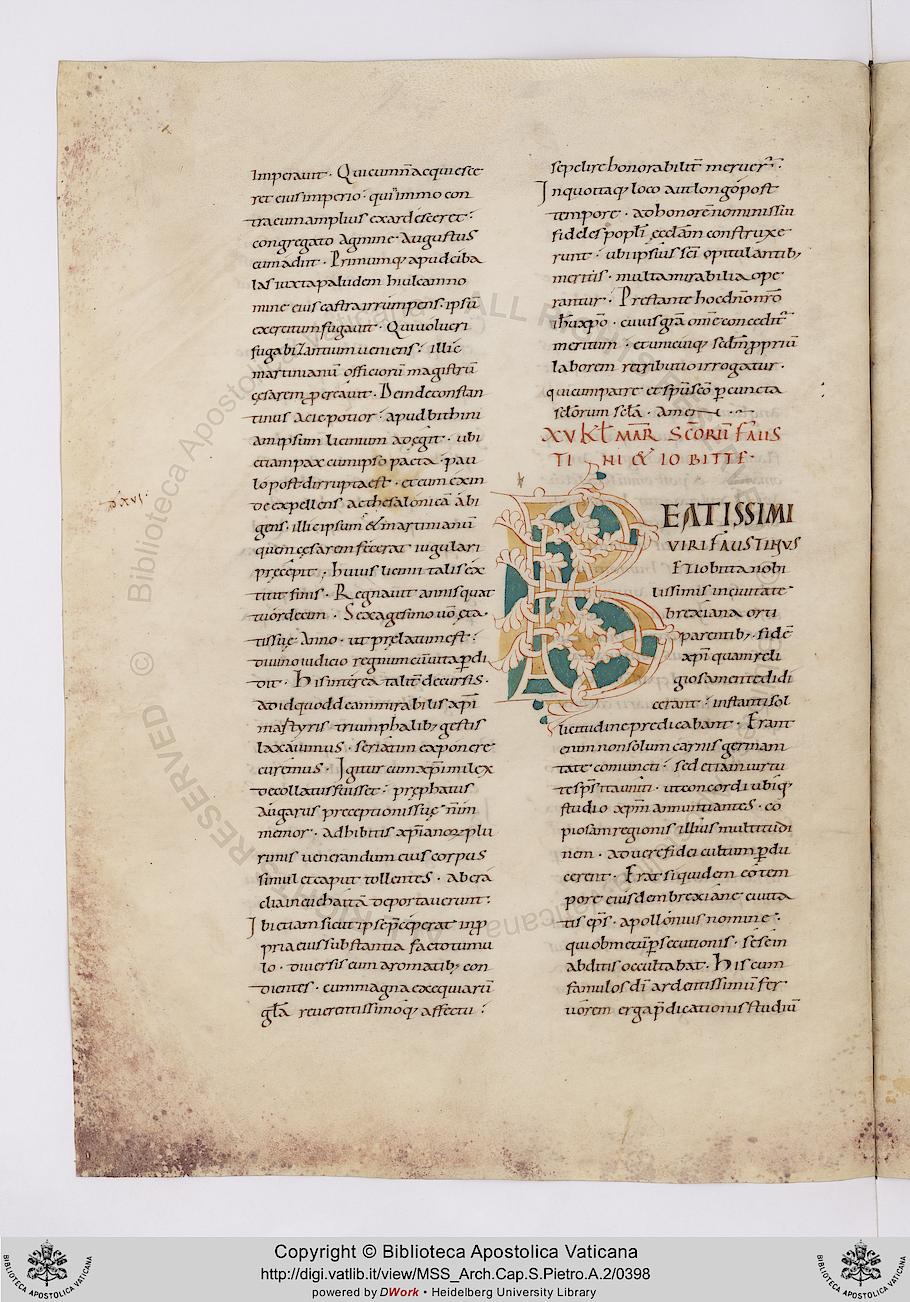 imperauit · Qui cum n̄ acquiesce
ret eius imperio · qui immo con
tra eum amplius exardesceret ·
congregato agmine augustus
eum adiit · Primumq; apud ciba
las iuxta paludem hiulcam no
mine eius castra irrumpens · ipsū
exercitum fugauit · Qui uolucri
fuga bizantium ueniens · illic
martinianū officiorū magistrū
cęsarem p̱creauit · Deinde constan
tinus acie potior · apud bithini
am ipsum licinium adegit · ubi
etiam pax cum ipso pacta · pau
lo post dirrupta est · et eum exin
de expellens ac thesalonicā abi
gens · illic ipsum & martinianū
quem cęsarem fecerat iugulari
pręcepit · Huius licinii talis ex
titit finis · Regnauit annis quat
tuordecim · Sexagesimo uō ęta
tissuę anno · ut pręlatum est ·
diuino iudicio regnum cū uita p̱di
dit · His interea talit̄ decursis ·
ad id quod de ammirabilis xp̄i
martyris triumphalib; gestis
laxauimus · seriatim exponere
curemus · Igitur cum xp̄i milex
decollatus fuisset · pręphatus
augarus preceptionis suę n̄im
memor · adhibitis xp̄ianoꝝ plu
rimis uenerandum eius corpus
simul et caput tollentes · ab era
clia in euchaitā deportauerunt ·
Ibi etiam sicut ipse p̄cęperat in p̱
pria eius substantia facto tumu
lo · diuersis cum aromatib; con
dientes · cum magna exequiarū
gl̄a reuerentissimoq; affectu ·
sepelire honorabilit̄ meruer̄ ·
In quo itaq; loco aut longo post
tempore · ad honorē nominis sui
fideles popl̄i ęccl̄am construxe
runt · ubi ipsius sc̄i opitulantib;
meritis · multa mirabilia ope
rantur · Prestante hoc dn̄o nr̄o
ih̄u xp̄o · cuius gr̄a om̄e concedit̄
meritum · et unicuiq; scdm̄ p̱priū
laborem retributio irrogatur ·
qui cum patre et sp̄u sc̄o p̱ cuncta
sc̄lorum sc̄la · amen
XV KL̄ MAR̄ SC̄ORŪ FAUS
TI NI & IOBITTE ·
d xvi ·
BEATISSIMI
VIRI FAUSTINUS
Et iobitta nobi
lissimis in ciuitate
brexiana orti
parentib; · fidē
xp̄i quam reli
giosa mente didi
cerant · instanti sol
licitudine predicabant · Erant
enim non solum carnis germani
tate coniuncti · sed etiam uirtu
te sp̄s tᷓ uniti · ut concordi ubiq;
studio xp̄m annuntiantes · co
piosam regionis illius multitudi
nem · ad uere fidei cultum p̱du
cerent · Erat siquidem eo tem
pore eiusdem brexiane ciuita
tis ep̄s · apollonius nomine ·
qui ob metū p̱secutionis · sese in
abditis occultabat · His cum
famulos dī ardentissimū fer
uorem erga p̄dicationis studiū
Copyright © Biblioteca Apostolica Vaticana
http://digi.vatlib.it/view/MSS_Arch.Cap.S.Pietro.A.2/0398
powered by DWork • Heidelberg University Library